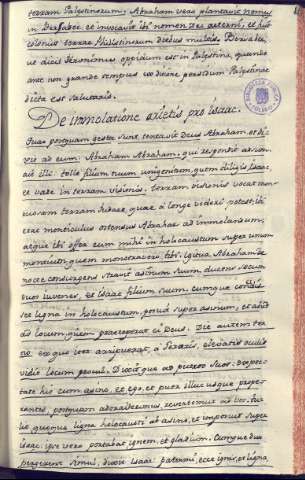 terram Palestinorum, Abraham vero plantavit nemus
in Bersabee, et invocavit ibi nomen Dei aeterni, et fuit
colonus terrae Philistinorum diebus multis.
oppidum est in Palestina, quando
ante non grande tempus
dicta est salutaris.
De immolatione arietis pro Isaac.
Quae postquam gesta sunt, tentavit Deus Abraham, et di-
xit ad eum: Abraham Abraham, qui respondit adsum.
ait illi: tolle filium tuum unigenitum, quem diligis Isaac,
et vade in terram visionis, terram visionis vocat
terram quae a longe videri potest, ibi
monticulus ostensus Abrahae ad immolandum,
atque ibi offer eum mihi in holocaustum super unum
montium, quem monstravero tibi. Igitur Abraham de
nocte consurgens stravit asinum suum, ducens secum
duos iuvenes, et Isaac filium suum, cumque concidis-
set ligna in holocaustum, posuit super asinum, et abiit
ad locum, quem praeceperat ei Deus. Die autem ter-
tio ex quo iter arripuerat, elevatis oculis
vidit locum procul. Dixitque ad pueros suos: expec-
tate hic cum asino, et ego, et puer illuc usque prope-
rantes, postquam adoraverimus, revertemur ad vos. tu-
lit quoque ligna holocausti ab asino, et imposuit super
Isaac. ipse vero portabat ignem, et gladium. Cumque duo
pergerent simul, dixit Isaac patri mi, ecce ignis, et ligna,